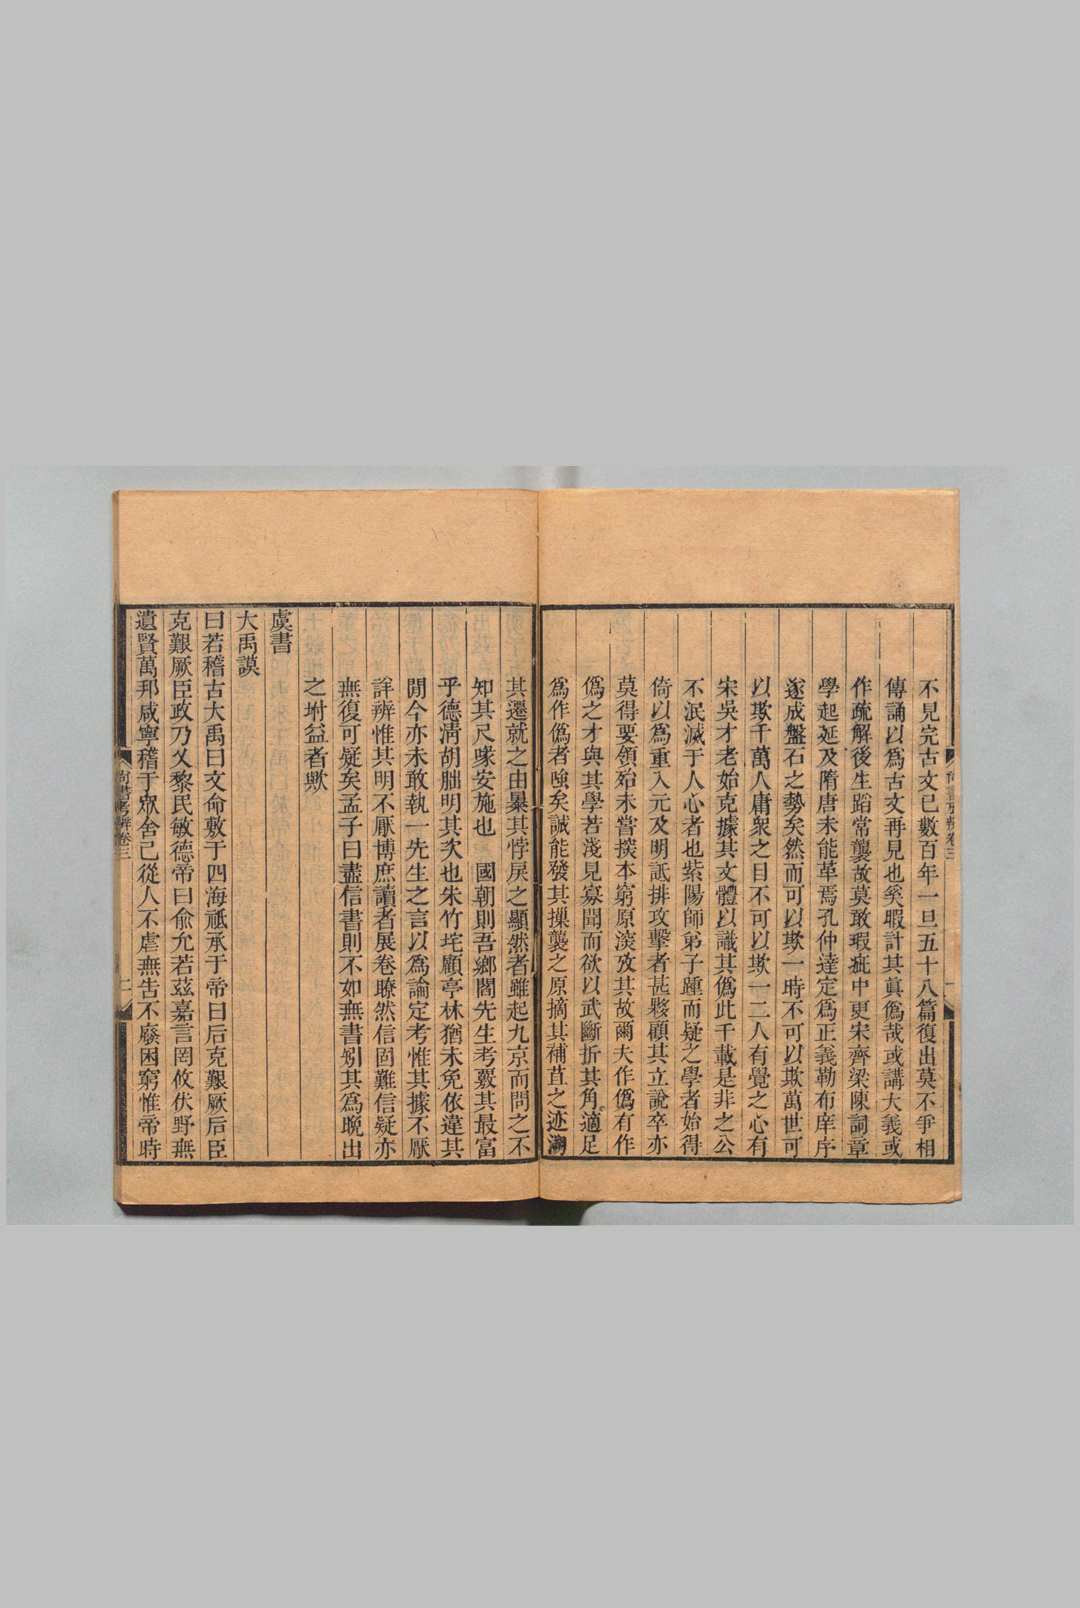 不見完古文已數百年一旦五十八篇復出莫不爭相
傳誦以爲古文再見也奚暇計其眞僞哉或講大義或
作疏解後生蹈常襲故莫敢瑕疵中更宋齊梁陳詞章
學起延及隋唐未能革焉孔仲達定爲正義勒布庠序
遂成盤石之勢矣然而可以欺一時不可以欺萬世可
以欺千萬人庸衆之目不可以欺一二人有覺之心有
宋吳才老始克據其文體以議其僞此千載是非之公
不泯滅于人心者也紫陽師弟子踵而疑之學者始得
倚以爲重入元及明詆排攻擊者甚夥顧其立說卒亦
莫得要領始未嘗探本窮原深攷其故爾夫作僞有作
僞之才與其學若淺見寡聞而欲以武斷折其角適足
爲作僞者嗤矣誠能發其摷襲之原摘其補苴之迹溯
其遷就之由暴其悖戾之顯然者雖起九京而問之不
知其尺喙安施也　國朝則吾鄉閻先生考覈其最富
乎德清胡朏明其次也朱竹垞顧亭林猶未免依違其
閒今亦未敢執一先生之言以爲論定考惟其據不厭
詳辨惟其明不厭博庶讀者展卷瞭然信固難信疑亦
無復可疑矣孟子曰盡信書則不如無書矧其爲晚出
之坿益者歟
虞書
大禹謨
曰若稽古大禹曰文命敷于四海祗承于帝曰后克艱厥后臣
克艱厥臣政乃乂黎民敏德帝曰俞允若茲嘉言罔攸伏野無
遺賢萬邦咸寧稽于眾舍己從人不虐無告不廢困窮惟帝時
尚書考辨卷三
二